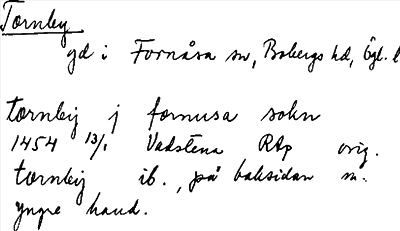 Tornby
gd i Fornåsa sn, Bobergs hd, Ögl. l
tornby j fornusa sokn
1454 13/1 Vadstena RAp orig.
tornby ib., på baksidan m.
yngre hand.